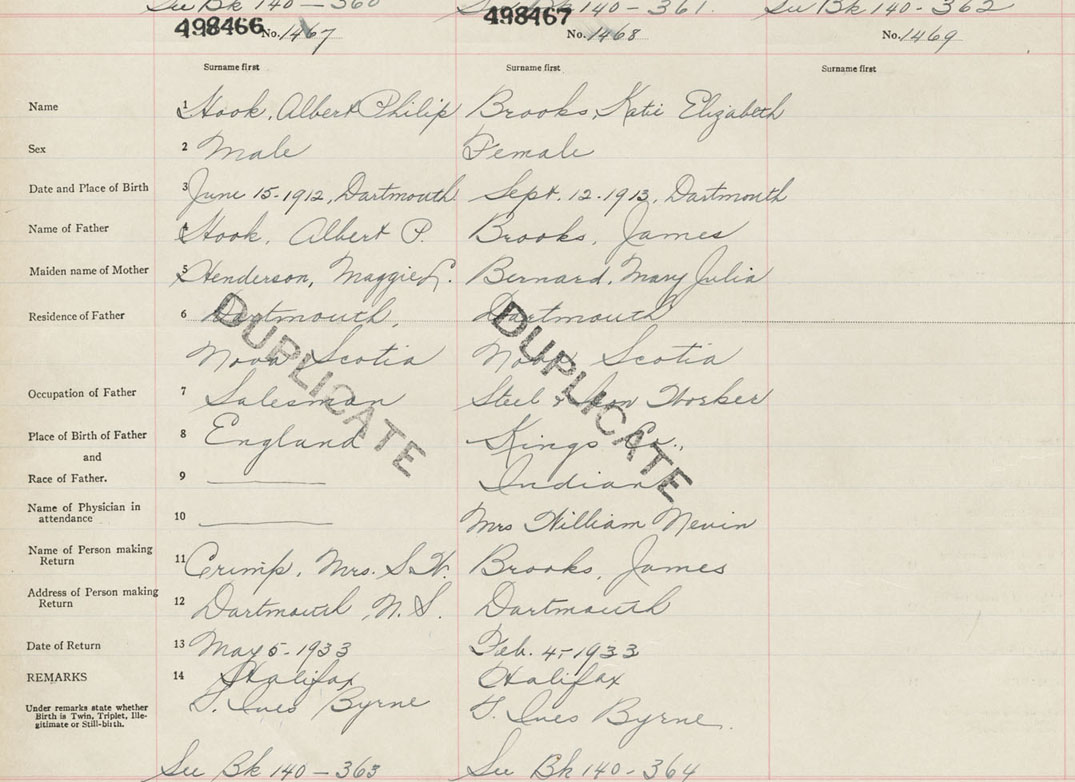 See Bk 140 - 360 See Bk 140 - 361. See Bk 140 - 362
498466 No. 1467 498467 No. 1468 No. 1469
Surname first Surname first Surname first
Name 1 Hook, Albert Philip Brooks, Katie Elizabeth
Sex 2 Male Female
Date and Place of Birth 3 June 15-1912, Dartmouth Sept. 12-1913, Dartmouth
Name of Father 4 Hook, Albert P. Brooks, James
Maiden name of Mother 5 Henderson, Maggie L. Bernard, Mary Julia
Residence of Father 6 Dartmouth, Dartmouth
Nova Scotia Nova Scotia
DUPLICATE DUPLICATE
Occupation of Father 7 Salesman Steel & Iron Worker
Place of Birth of Father 8 England Kings Co.,
and
Race of Father. 9 Indian
Name of Physician in
attendance 10 Mrs William Nevin
Name of Person making
Return 11 Crimp, Mrs. S.W. Brooks, James
Address of Person making
Return 12 Dartmouth, N.S. Dartmouth
Date of Return 13 May 5-1933 Feb. 4-1933
REMARKS 14 Halifax Halifax
Under remarks state whether
Birth is Twin, Triplet, Ille-
gitimate or Still-birth.
Ines Byrne Ines Byrne
See Bk 140 - 363 See Bk 140 - 364